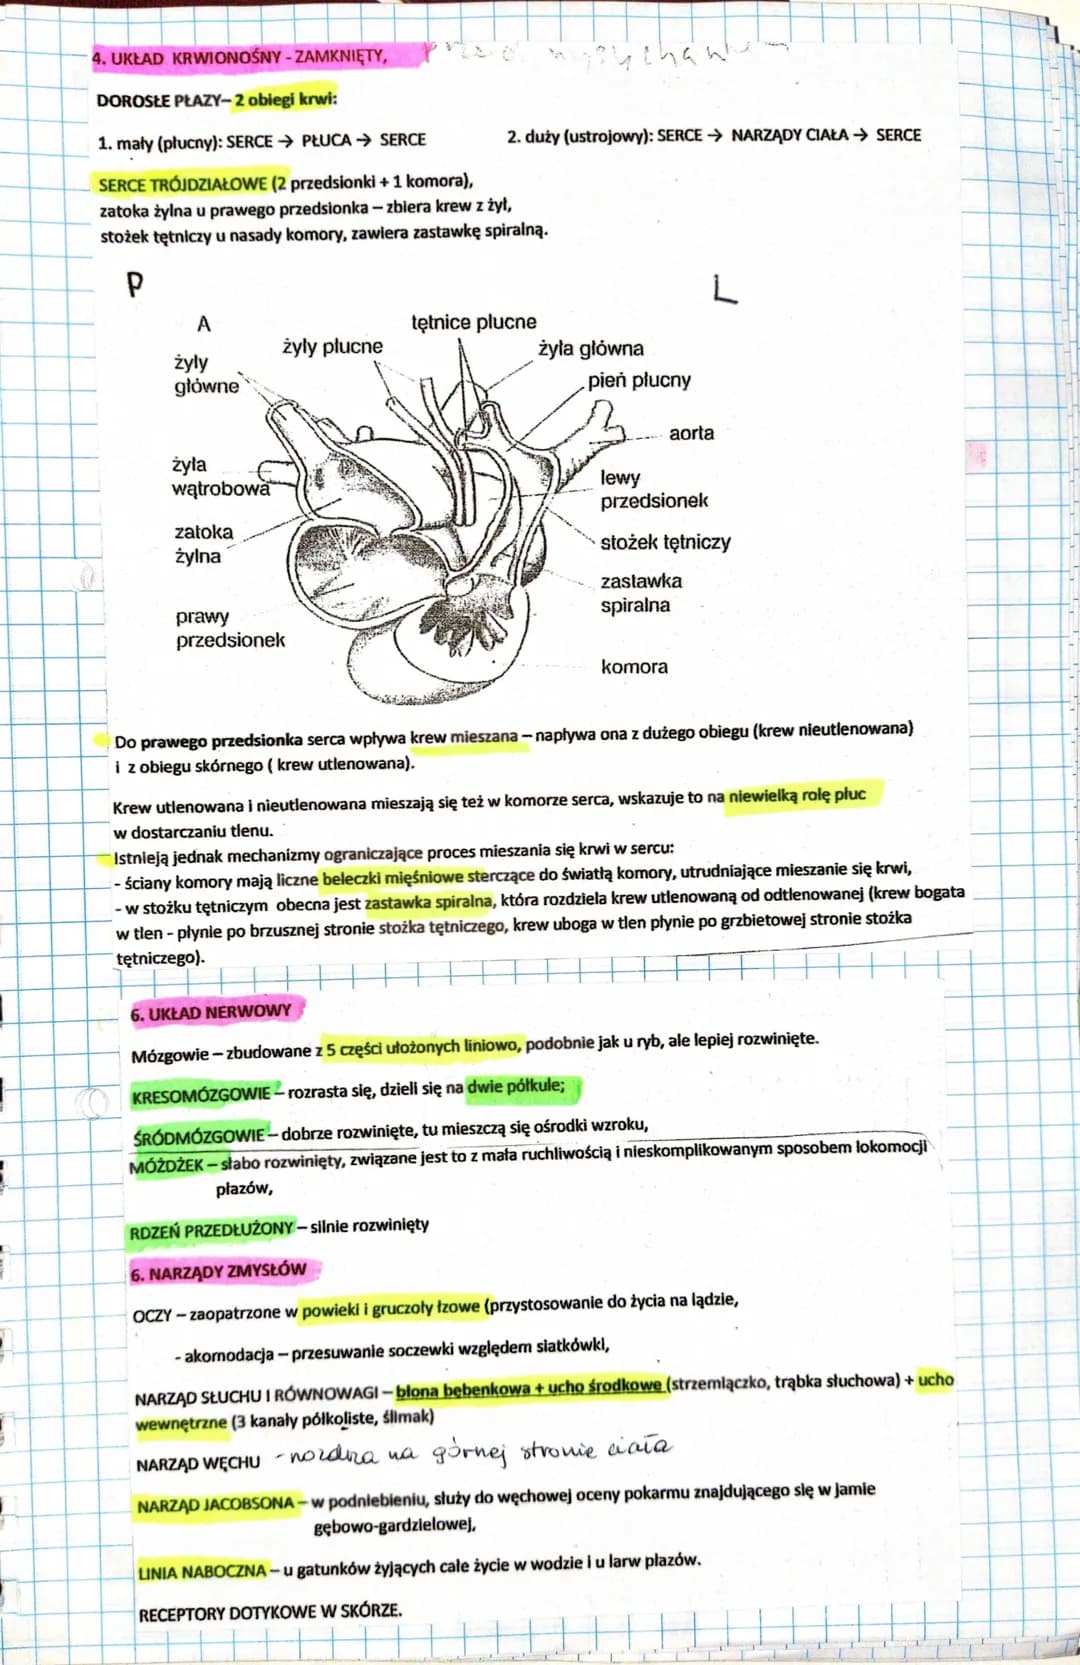 4. UKŁAD KRWIONOŚNY - ZAMKNIĘTY,
DOROSŁE PŁAZY– 2 obiegi krwi:
1. mały (płucny): SERCE → PŁUCA → SERCE 2. duży (ustrojowy): SERCE → NARZĄDY CIAŁA → SERCE
SERCE TRÓJDZIAŁOWE (2 przedsionki + 1 komora),
zatoka żylna u prawego przedsionka – zbiera krew z żył,
stożek tętniczy u nasady komory, zawiera zastawkę spiralną.
P L
A
tętnice plucne
żyły plucne
żyła główna
żyły
główne
pień płucny
aorta
żyla
wątrobowa
lewy
przedsionek
zatoka
żylna
stożek tętniczy
zastawka
spiralna
prawy
przedsionek
komora
Do prawego przedsionka serca wpływa krew mieszana – napływa ona z dużego obiegu (krew nieutlenowana)
i z obiegu skórnego ( krew utlenowana).
Krew utlenowana i nieutlenowana mieszają się też w komorze serca, wskazuje to na niewielką rolę płuc
w dostarczaniu tlenu.
Istnieją jednak mechanizmy ograniczające proces mieszania się krwi w sercu:
- ściany komory mają liczne beleczki mięśniowe sterczące do światłą komory, utrudniające mieszanie się krwi,
- w stożku tętniczym obecna jest zastawka spiralna, która rozdziela krew utlenowaną od odtlenowanej (krew bogata
w tlen - płynie po brzusznej stronie stożka tętniczego, krew uboga w tlen płynie po grzbietowej stronie stożka
tętniczego).
6. UKŁAD NERWOWY
Mózgowie – zbudowane z 5 części ułożonych liniowo, podobnie jak u ryb, ale lepiej rozwinięte.
KRESOMÓZGOWIE – rozrasta się, dzieli się na dwie półkule;
ŚRÓDMÓZGOWIE – dobrze rozwinięte, tu mieszczą się ośrodki wzroku,
MÓŻDŻEK – słabo rozwinięty, związane jest to z mała ruchliwością i nieskomplikowanym sposobem lokomocji
płazów,
RDZEŃ PRZEDŁUŻONY – silnie rozwinięty
6. NARZĄDY ZMYSŁÓW
OCZY – zaopatrzone w powieki i gruczoły łzowe (przystosowanie do życia na lądzie,
- akomodacja – przesuwanie soczewki względem siatkówki,
NARZĄD SŁUCHU I RÓWNOWAGI – błona bębenkowa + ucho środkowe (strzemiączko, trąbka słuchowa) + ucho
wewnętrzne (3 kanały półkoliste, ślimak)
NARZĄD WĘCHU - nozdrza na górnej stronie ciała
NARZĄD JACOBSONA – w podniebieniu, służy do węchowej oceny pokarmu znajdującego się w jamie
gębowo-gardzielowej,
LINIA NABOCZNA – u gatunków żyjących całe życie w wodzie i u larw płazów.
RECEPTORY DOTYKOWE W SKÓRZE.